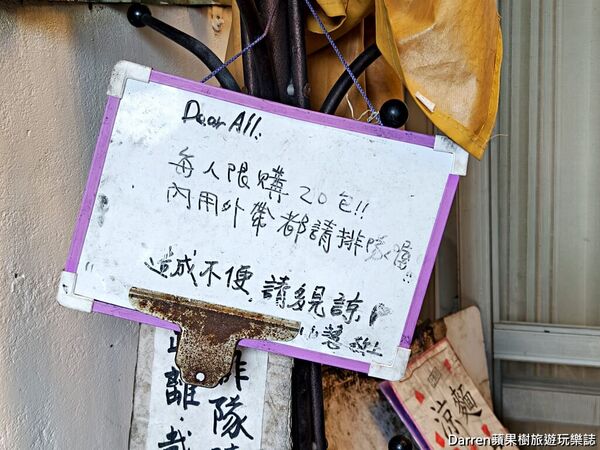 Dear All.
每人限購 20包!!
內用外帶都請排隊喔!!
造成不便,請多見諒
敬上
排隊
離.戴
涼麵
Darren蘋果樹旅遊玩樂誌